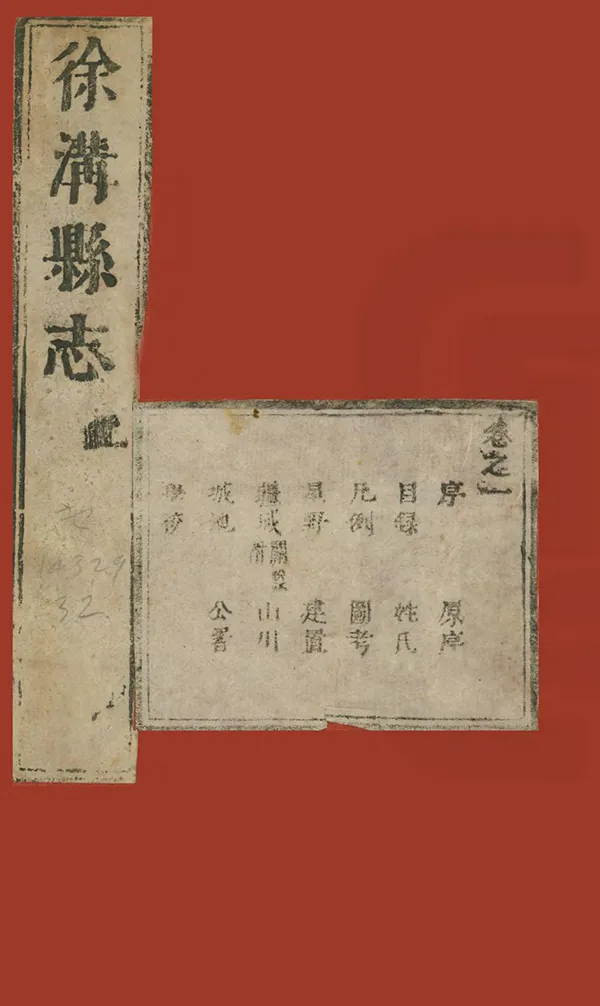 徐溝縣志
32
卷之一
序 原序
目録 姓氏
凡例 圖考
星野 建置
疆域 山川
城池 公署
學校